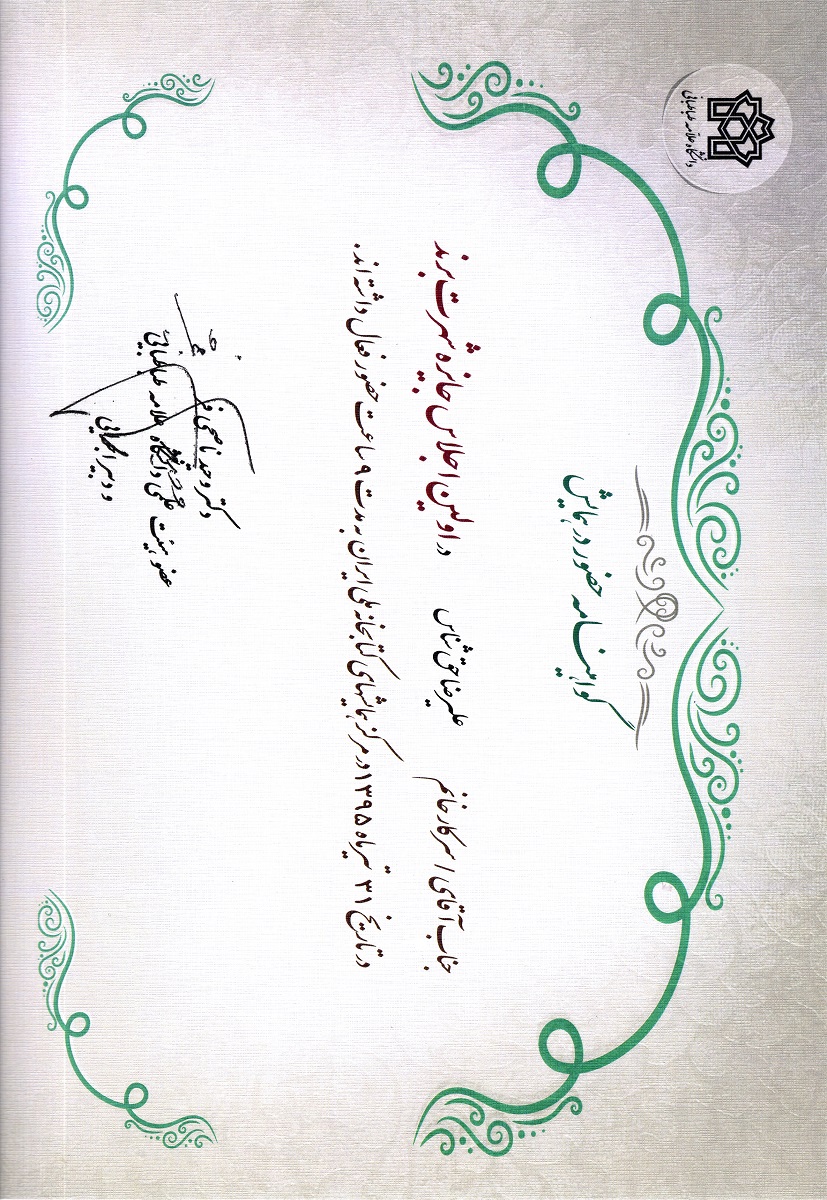 دانشگاه علامه طباطبائی
گواهینامه حضور در همایش
جناب آقای / سرکار خانم علیرضا حق شناس در اولین اجلاس جایزه شهرت برند
در تاریخ ۳۱ تیرماه ۱۳۹۵ در مرکز همایشهای کتابخانه ملی ایران به مدت ۹ ساعت حضور فعال داشته اند.
دکتر وحید ناصحی فر
عضو هیئت علمی دانشگاه علامه طباطبایی
و دبیر اجرائی